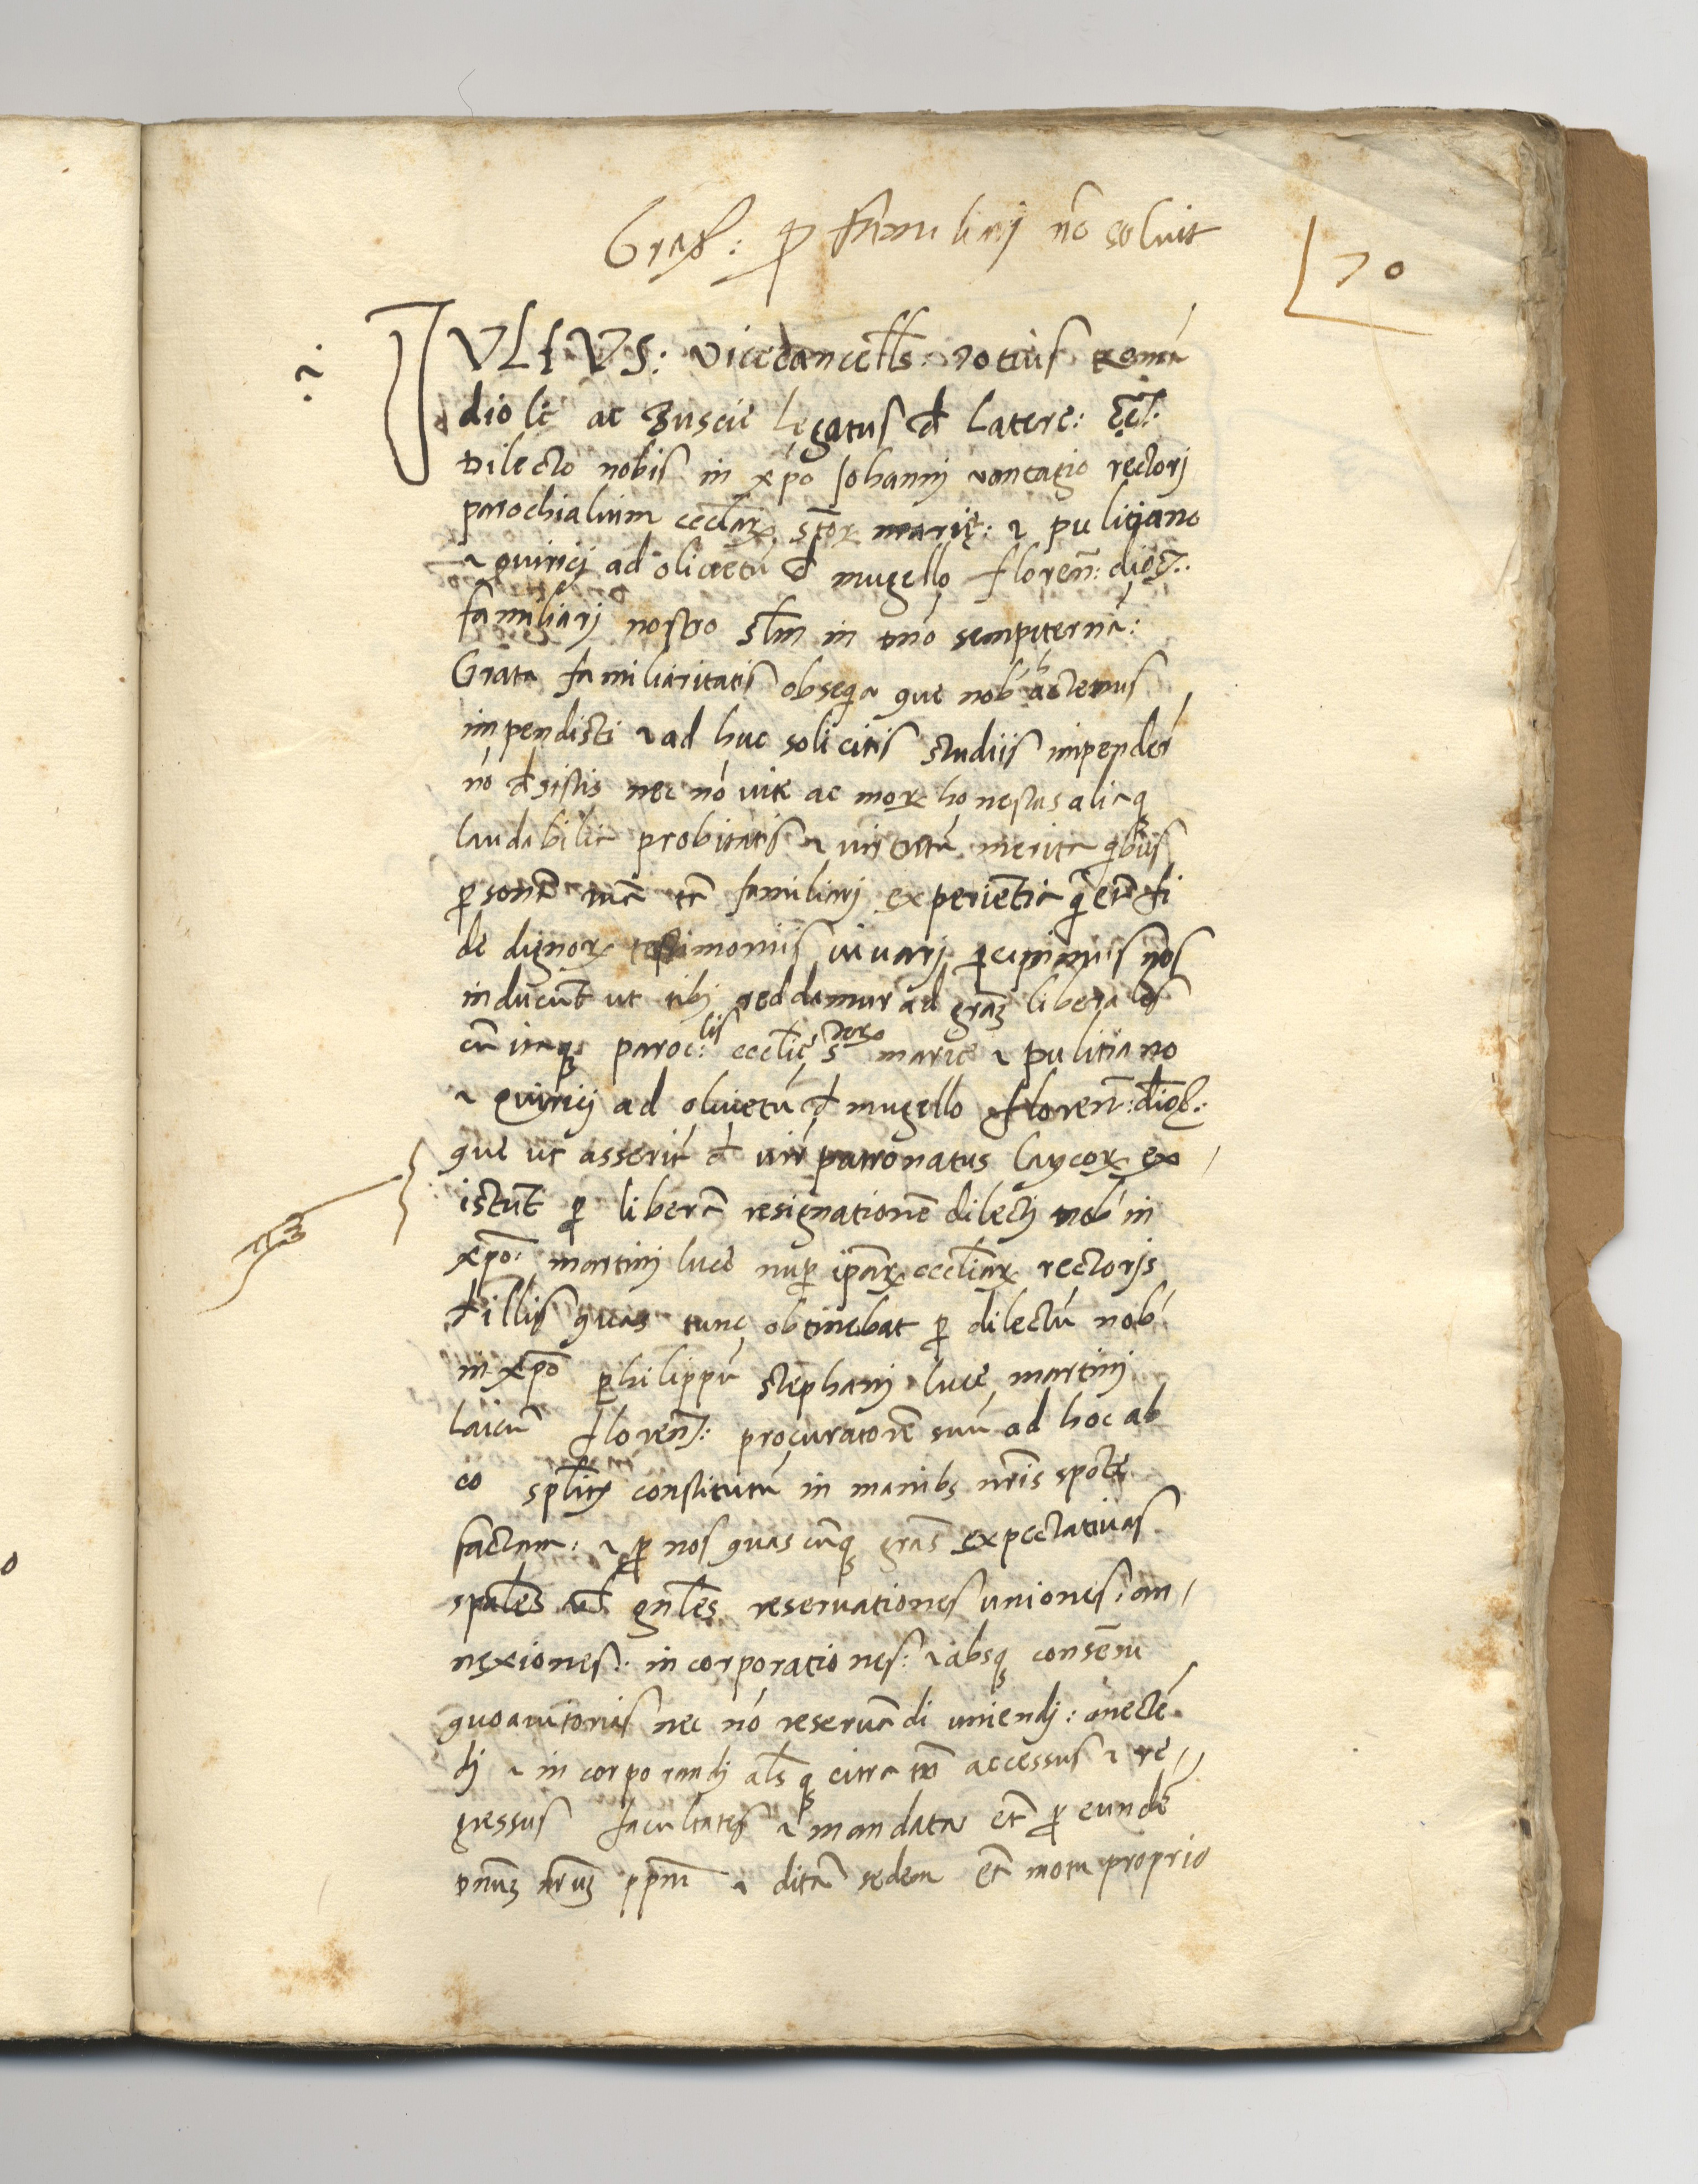 Gratis: ꝑ familiarj nō soluit
70
IVLIVS: vicecancells: totius romā
diole ac Tuscie legatus đ latere: &c̄:
Dilecto nobis in xp̄o Johannj vantagio rectorj
parochialium eccl̄arꝝ stōrꝝ marię: ⁊ pulitiano
⁊ quiricj ad olivetū đ mugello floreñ: dioc̄:
familiarj nostro sl̄m in dnō sempiternā:
Grata familiaritatis obseqͥa que nob́ hactenus
impendisti ⁊ ad huc solicitis studiis impenderé
nō đsistis nec nō vite ac morꝝ honestas aliaqꝫ
laudabilia probitatis ⁊ virtutū merita qͥbus
ꝑsonā tuā tā familiarj experiētia qͣ etiā fi
de dignorꝝ testimoniis iuuarj ꝑcipimus nos
inducūt ut tibj reddamur ad grāꝫ liberales
cū itaqꝫ paroc:lis eccl̄ie stōrꝝ marie ⁊ pulitiano
⁊ quiricj ad olivetū đ mugello floreñ: dioc̄:
que ut asserit́ đ iur̄ patronatus laycorꝝ ex
istūt ꝑ liberā resignationē dilectj nob́ in
xp̄o: martinj luce nuꝑ ip̄arꝝ eccl̄iarꝝ rectoris
đ illis quas tunc obtinebat ꝑ dilectū nob́
in xp̄o philippū stephanj luce martinj
laicū floreñ: procuratorē suū ad hoc ab
eo spl̄itꝭ constitutū in manibꝫ nr̄is spōte
factam: ⁊ ꝑ nos quascūqꝫ grās expectatiuas
spāles vł gn̄les reseruationes uniones: an
nexiones: incorporationes: ⁊ absqꝫ consēsu
quoaiutorias nec nō reseruādi uniendj: anectē
dj ⁊ incorporandj al̄sqꝫ citra tn̄ accessus ⁊ re
gressus facultates ⁊ mandata et̄ ꝑ eundē
dnūꝫ nr̄uꝫ ppm̄ ⁊ dictā sedem et̄ motu proprio